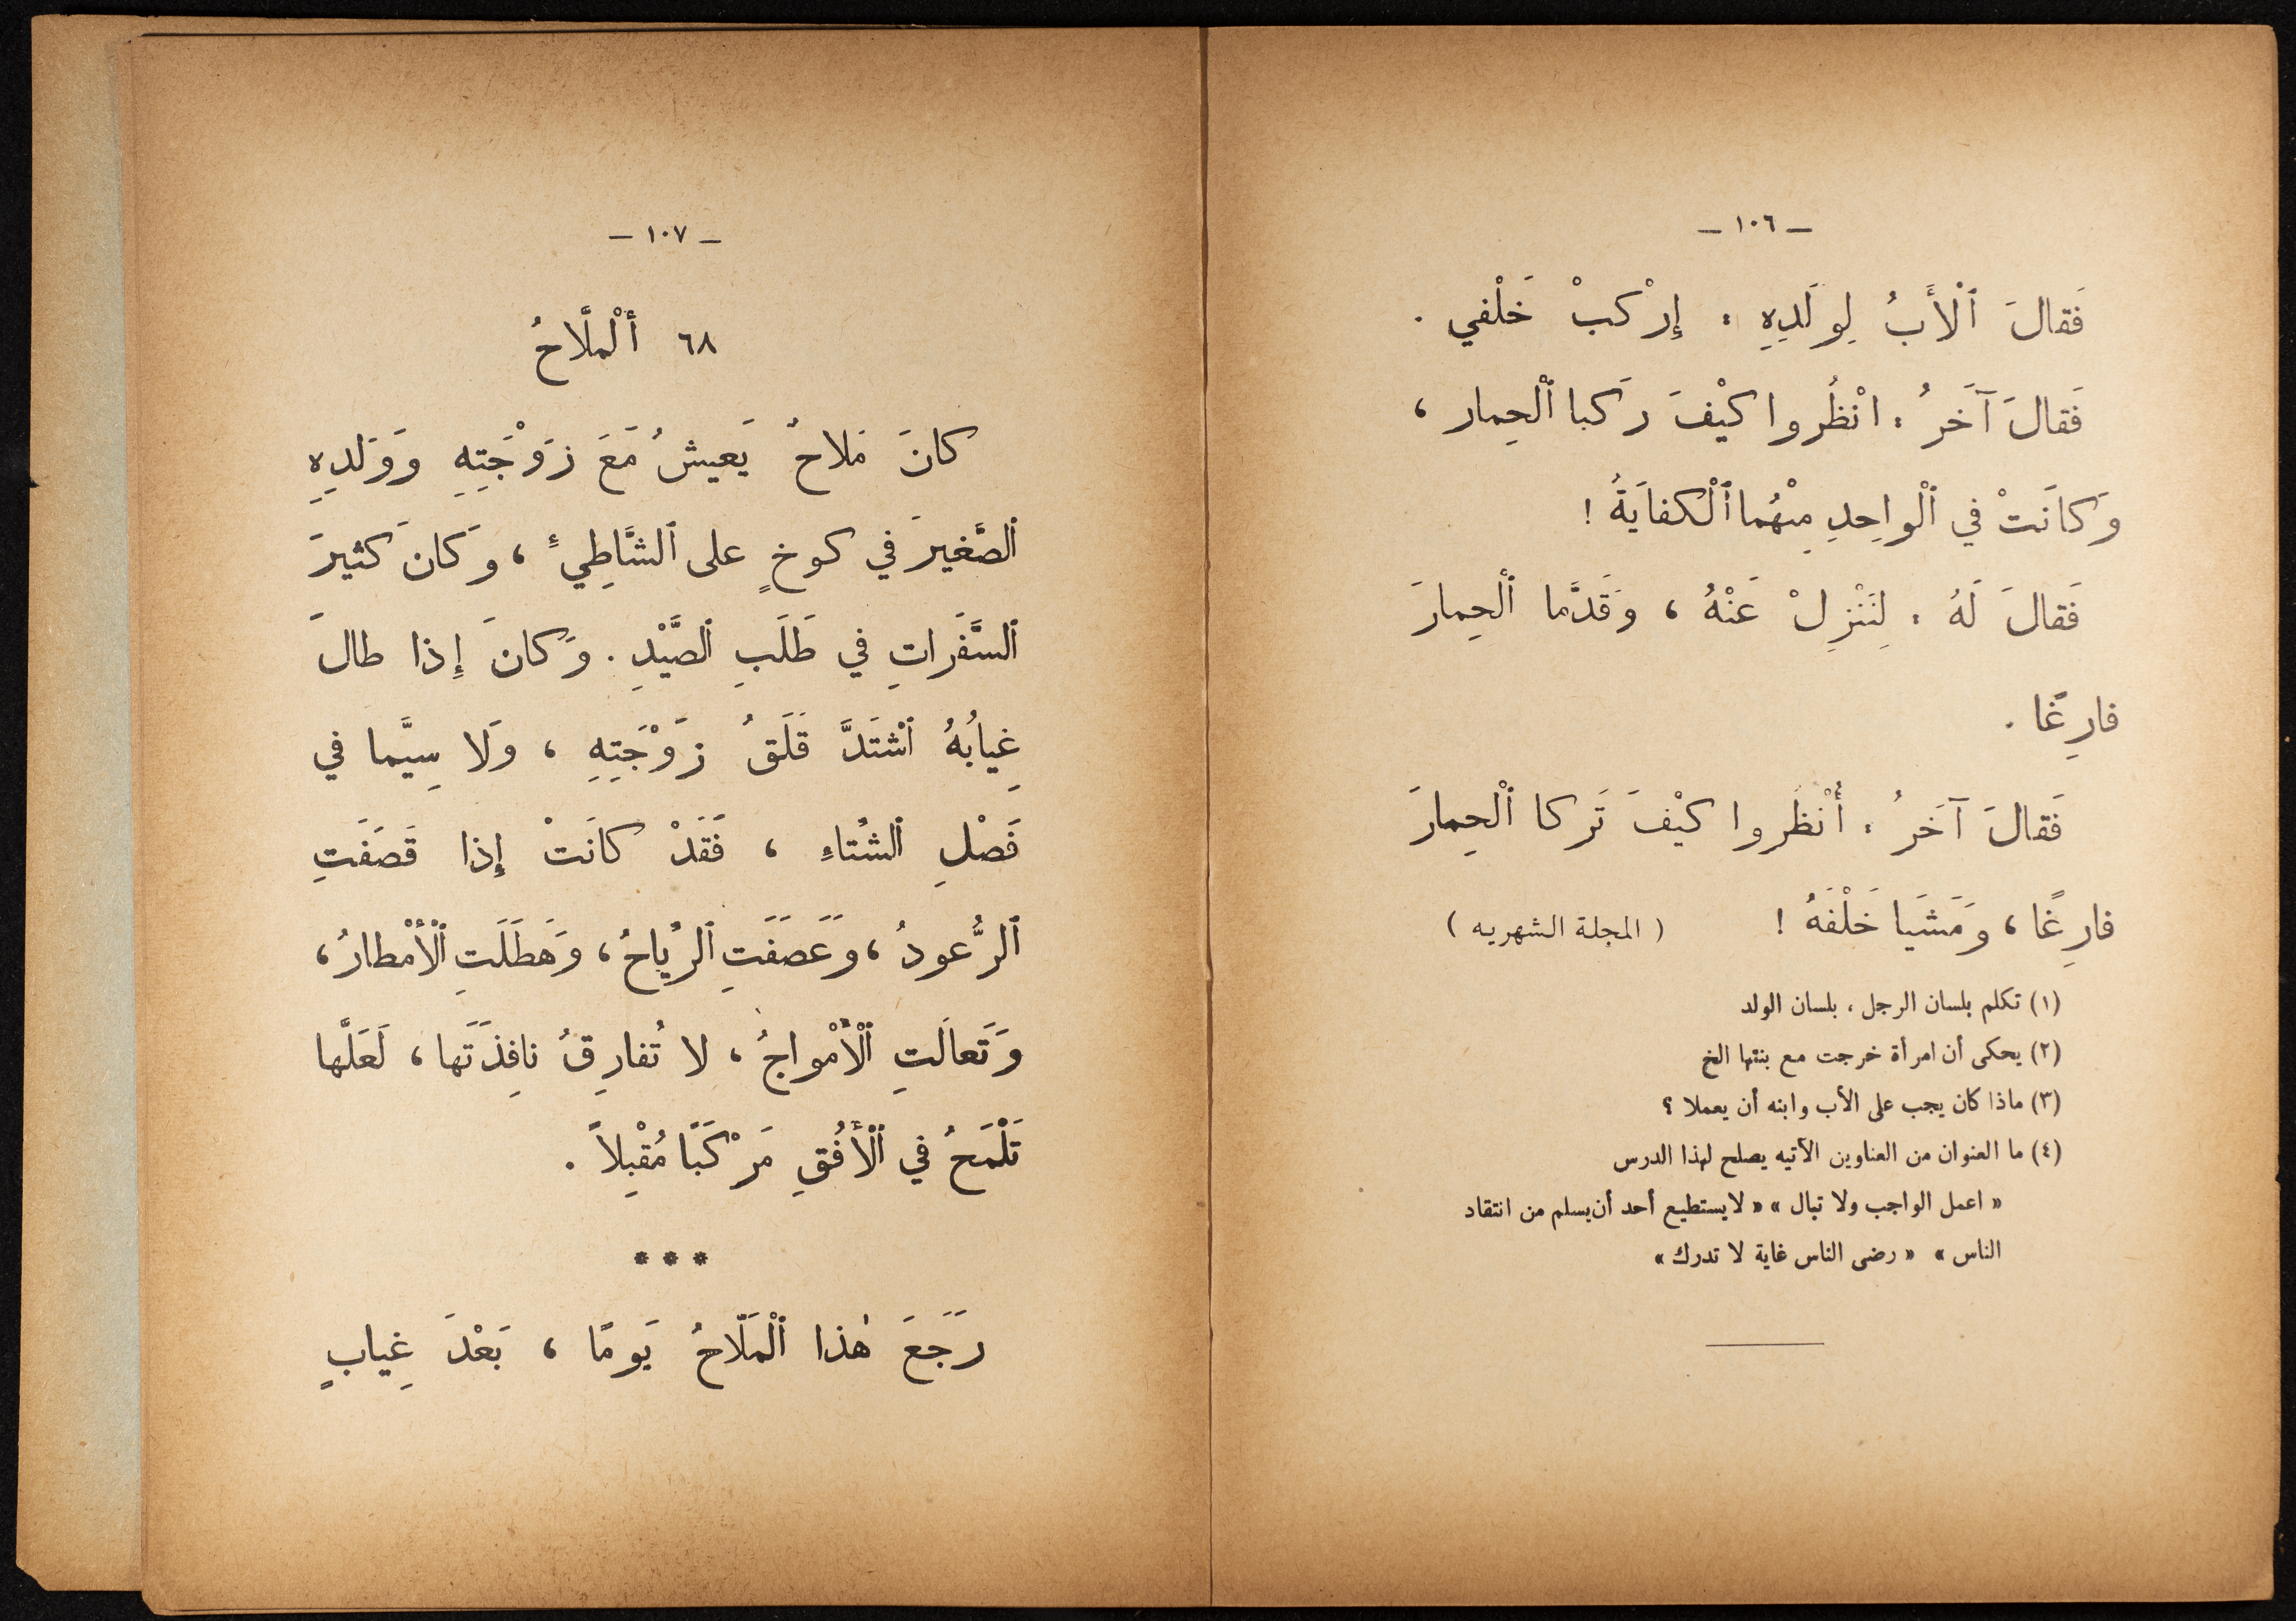 — ١٠٦ —
فَقالَ ٱلْأَبُ لِوَلَدِهِ : إِرْكبْ خَلْفي .
فَقالَ آخَرُ : انْظُروا كيْفَ رَكبا ٱلْحِمار ،
وَكانَتْ في ٱلْواحِدِ مِنْهُما ٱلْكفايَةُ !
فَقالَ لَهُ : لِنَنْزِلْ عَنْهُ ، وَقَدَّما ٱلْحِمارَ
فارِغًا .
فَقالَ آخَرُ : أُنْظُروا كيْفَ تَركا ٱلْحِمارَ
فارِغًا ، وَمَشَيا خَلْفَهُ ! ( المجلة الشهريه )
(١) تكلم بلسان الرجل ، بلسان الولد
(٢) يحكى أن امرأة خرجت مع بنتها الخ
(٣) ماذا كان يجب على الأب وابنه أن يعملا ؟
(٤) ما العنوان من العناوين الآتيه يصلح لهذا الدرس
« اعمل الواجب ولا تبال » « لا يستطيع أحد أن يسلم من انتقاد
الناس » « رضى الناس غاية لا تدرك »
— ١٠٧ —
٦٨ ألْملَّاحُ
كانَ مَلاحٌ يَعيشُ مَعَ زَوْجَتِهِ وَوَلَدِهِ
ٱلصَّغيرَ في كوخٍ على ٱلشَّاطِيءِ ، وَكانَ كثيرَ
ٱلسَّفَراتِ في طَلَبِ ٱلصَّيْدِ . وَكانَ إِذا طالَ
غِيابُهُ ٱشْتَدَّ قَلَقُ زَوْجَتِهِ ، وَلا سِيَّما في
فَصْلِ ٱلشتاءِ ، فَقَدْ كانَتْ إِذا قَصَفَتِ
ٱلرُّعودُ ، وَعَصَفَتِ ٱلرِّياحُ ، وَهَطَلَتِ ٱلْأَمْطارُ ،
وَتَعالَتِ ٱلْأَمْواجُ ، لا تُفارِقُ نافِذَتَها ، لَعَلَّها
تَلْمَحُ في ٱلْأُفُقِ مَرْكَبًا مُقْبِلاً .
* * *
رَجَعَ هٰذا ٱلْمَلّاحُ يَومًا ، بَعْدَ غِيابٍ